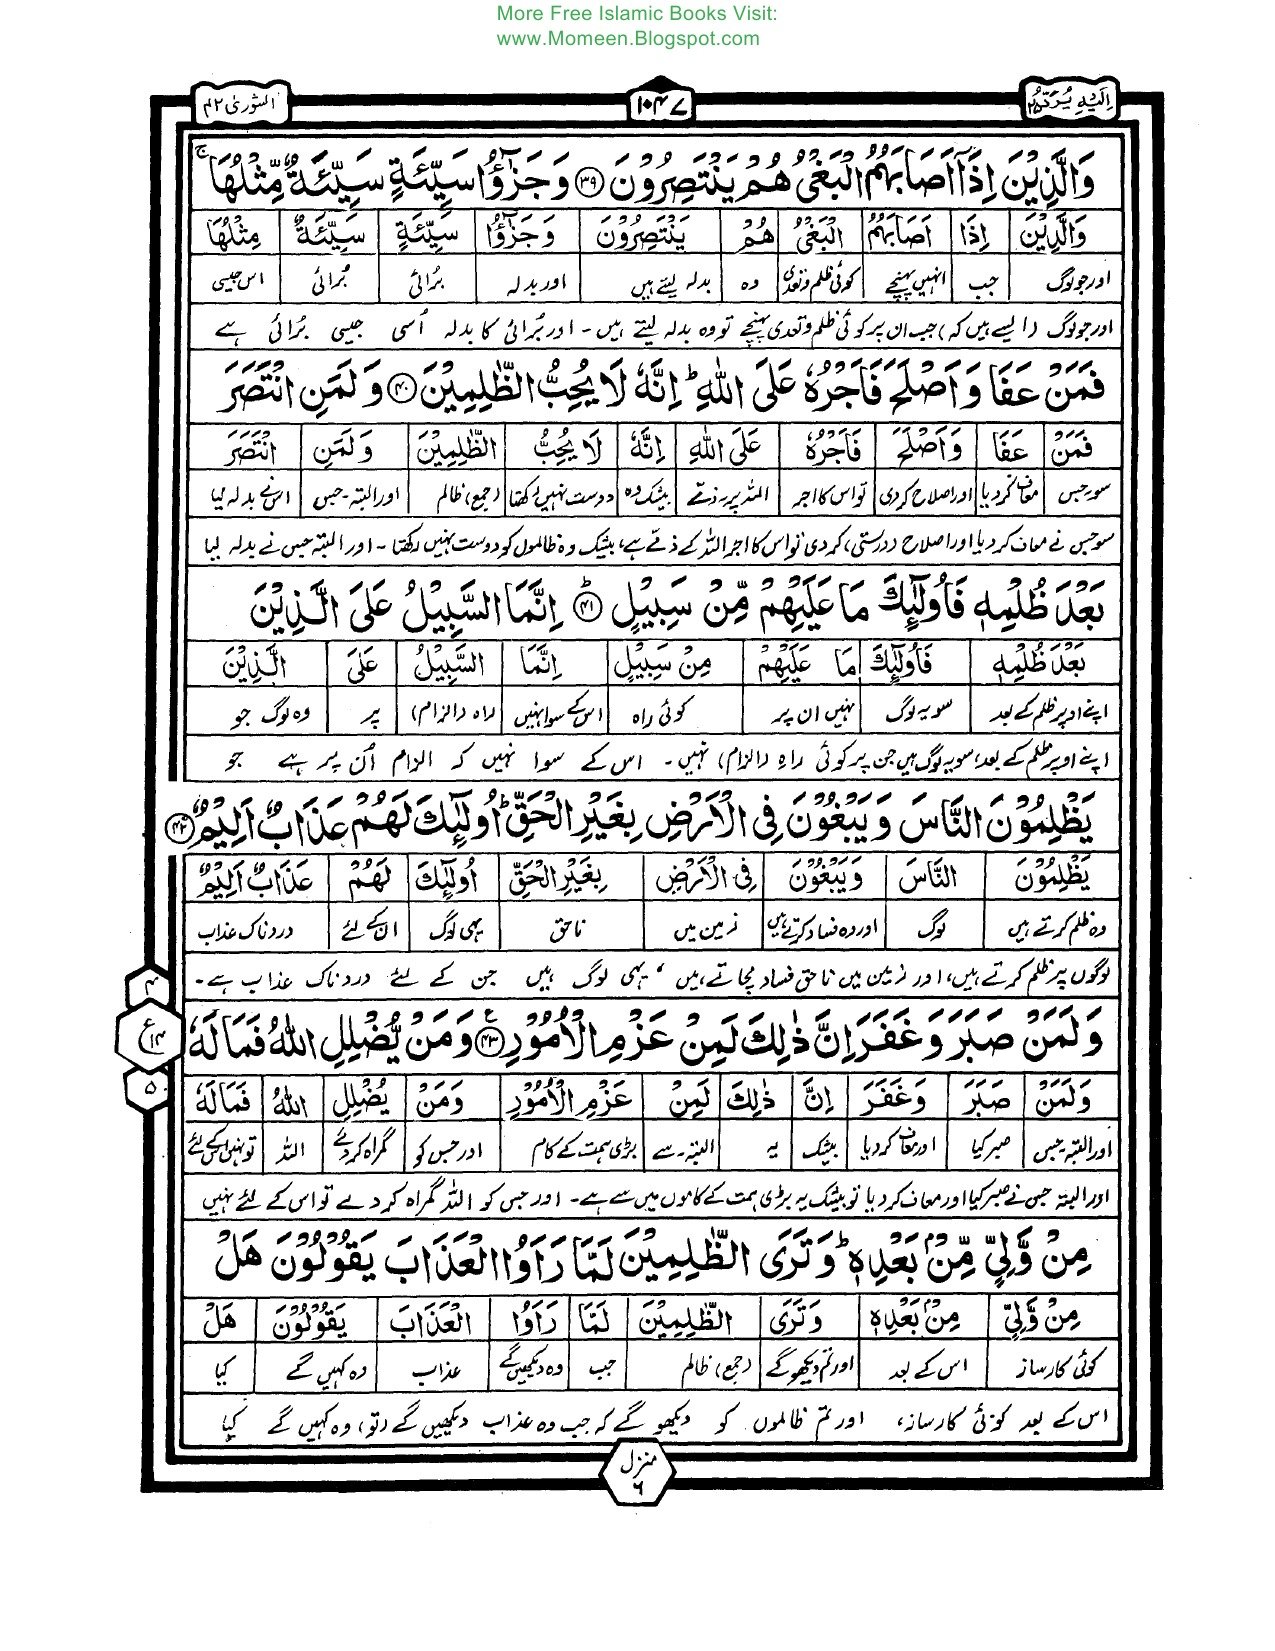 More Free Islamic Books Visit:
www.Momeen.Blogspot.com
اِلَیْهِ یُرَدُّ ۲۵
۱۰۴۷
الشورٰی ۴۲
وَالَّذِیْنَ اِذَاۤ اَصَابَهُمُ الْبَغْیُ هُمْ یَنْتَصِرُوْنَ ﴿۳۹﴾ وَ جَزٰٓؤُا سَیِّئَةٍ سَیِّئَةٌ مِّثْلُهَا ۚ
وَالَّذِیْنَ اِذَا اَصَابَهُمُ الْبَغْیُ هُمْ یَنْتَصِرُوْنَ وَ جَزٰٓؤُا سَیِّئَةٍ سَیِّئَةٌ مِثْلُهَا
اور جو لوگ جب انہیں پہنچے کوئی ظلم و تعدی وہ بدلہ لیتے ہیں اور بدلہ بُرائی بُرائی اس جیسی
اور جو لوگ (ایسے ہیں کہ) جب ان پر کوئی ظلم و تعدی پہنچے تو وہ بدلہ لیتے ہیں۔ اور بُرائی کا بدلہ اُسی جیسی بُرائی ہے
فَمَنْ عَفَا وَ اَصْلَحَ فَاَجْرُهٗ عَلَی اللّٰهِ ؕ اِنَّهٗ لَا یُحِبُّ الظّٰلِمِیْنَ ﴿۴۰﴾ وَ لَمَنِ انْتَصَرَ
فَمَنْ عَفَا وَ اَصْلَحَ فَاَجْرُهٗ عَلَی اللّٰهِ اِنَّهٗ لَا یُحِبُّ الظّٰلِمِیْنَ وَ لَمَنِ انْتَصَرَ
سو جس معاف کر دیا اور اصلاح کر دی تو اس کا اجر اللہ پر۔ ذمّے بیشک وہ دوست نہیں رکھتا (جمع) ظالم اور البتہ۔ جس اس نے بدلہ لیا
سو جس نے معاف کر دیا اور اصلاح (درستی) کر دی تو اس کا اجر اللہ کے ذمّے ہے، بیشک وہ ظالموں کو دوست نہیں رکھتا۔ اور البتہ جس نے بدلہ لیا
بَعْدَ ظُلْمِهٖ فَاُولٰٓئِكَ مَا عَلَیْهِمْ مِّنْ سَبِیْلٍ ؕ﴿۴۱﴾ اِنَّمَا السَّبِیْلُ عَلَی الَّذِیْنَ
بَعْدَ ظُلْمِهٖ فَاُولٰٓئِكَ مَا عَلَیْهِمْ مِنْ سَبِیْلٍ اِنَّمَا السَّبِیْلُ عَلَی الَّذِیْنَ
اپنے اوپر ظلم کے بعد سو یہ لوگ نہیں ان پر کوئی راہ اس کے سوا نہیں راہ (الزام) پر وہ لوگ جو
اپنے اوپر ظلم کے بعد، سو یہ لوگ ہیں جن پر کوئی راہ (الزام) نہیں۔ اس کے سوا نہیں کہ الزام اُن پر ہے جو
یَظْلِمُوْنَ النَّاسَ وَ یَبْغُوْنَ فِی الْاَرْضِ بِغَیْرِ الْحَقِّ ؕ اُولٰٓئِكَ لَهُمْ عَذَابٌ اَلِیْمٌ ﴿۴۲﴾
یَظْلِمُوْنَ النَّاسَ وَیَبْغُوْنَ فِی الْاَرْضِ بِغَیْرِ الْحَقِّ اُولٰٓئِكَ لَهُمْ عَذَابٌ اَلِیْمٌ
وہ ظلم کرتے ہیں لوگ اور وہ فساد کرتے ہیں زمین میں ناحق یہی لوگ ان کے لئے دردناک عذاب
لوگوں پر ظلم کرتے ہیں، اور زمین میں ناحق فساد مچاتے ہیں، یہی لوگ ہیں جن کے لئے دردناک عذاب ہے۔
وَ لَمَنْ صَبَرَ وَ غَفَرَ اِنَّ ذٰلِكَ لَمِنْ عَزْمِ الْاُمُوْرِ ﴿۴۳﴾ وَ مَنْ یُّضْلِلِ اللّٰهُ فَمَا لَهٗ
۴
ع ۱۴
۵
وَلَمَنْ صَبَرَ وَ غَفَرَ اِنَّ ذٰلِكَ لَمِنْ عَزْمِ الْاُمُوْرِ وَمَنْ یُضْلِلِ اللّٰهُ فَمَا لَهٗ
اور البتہ۔ جس صبر کیا اور معاف کر دیا بیشک یہ البتہ۔ سے بڑی ہمت کے کام اور جس کو گمراہ کر دے اللہ تو نہیں اس کے لئے
اور البتہ جس نے صبر کیا اور معاف کر دیا تو بیشک یہ بڑی ہمت کے کاموں میں سے ہے۔ اور جس کو اللہ گمراہ کر دے تو اس کے لئے نہیں
مِنْ وَّلِیٍّ مِّنْۢ بَعْدِهٖ ؕ وَ تَرَی الظّٰلِمِیْنَ لَمَّا رَاَوُا الْعَذَابَ یَقُوْلُوْنَ هَلْ
مِنْ وَّلِیٍّ مِنْۢ بَعْدِهٖ وَ تَرَی الظّٰلِمِیْنَ لَمَّا رَاَوُا الْعَذَابَ یَقُوْلُوْنَ هَلْ
کوئی کارساز اس کے بعد اور تم دیکھو گے (جمع) ظالم جب وہ دیکھیں گے عذاب وہ کہیں گے کیا
اس کے بعد کوئی کارساز، اور تم ظالموں کو دیکھو گے کہ جب وہ عذاب دیکھیں گے (تو) وہ کہیں گے کیا
منزل ۶